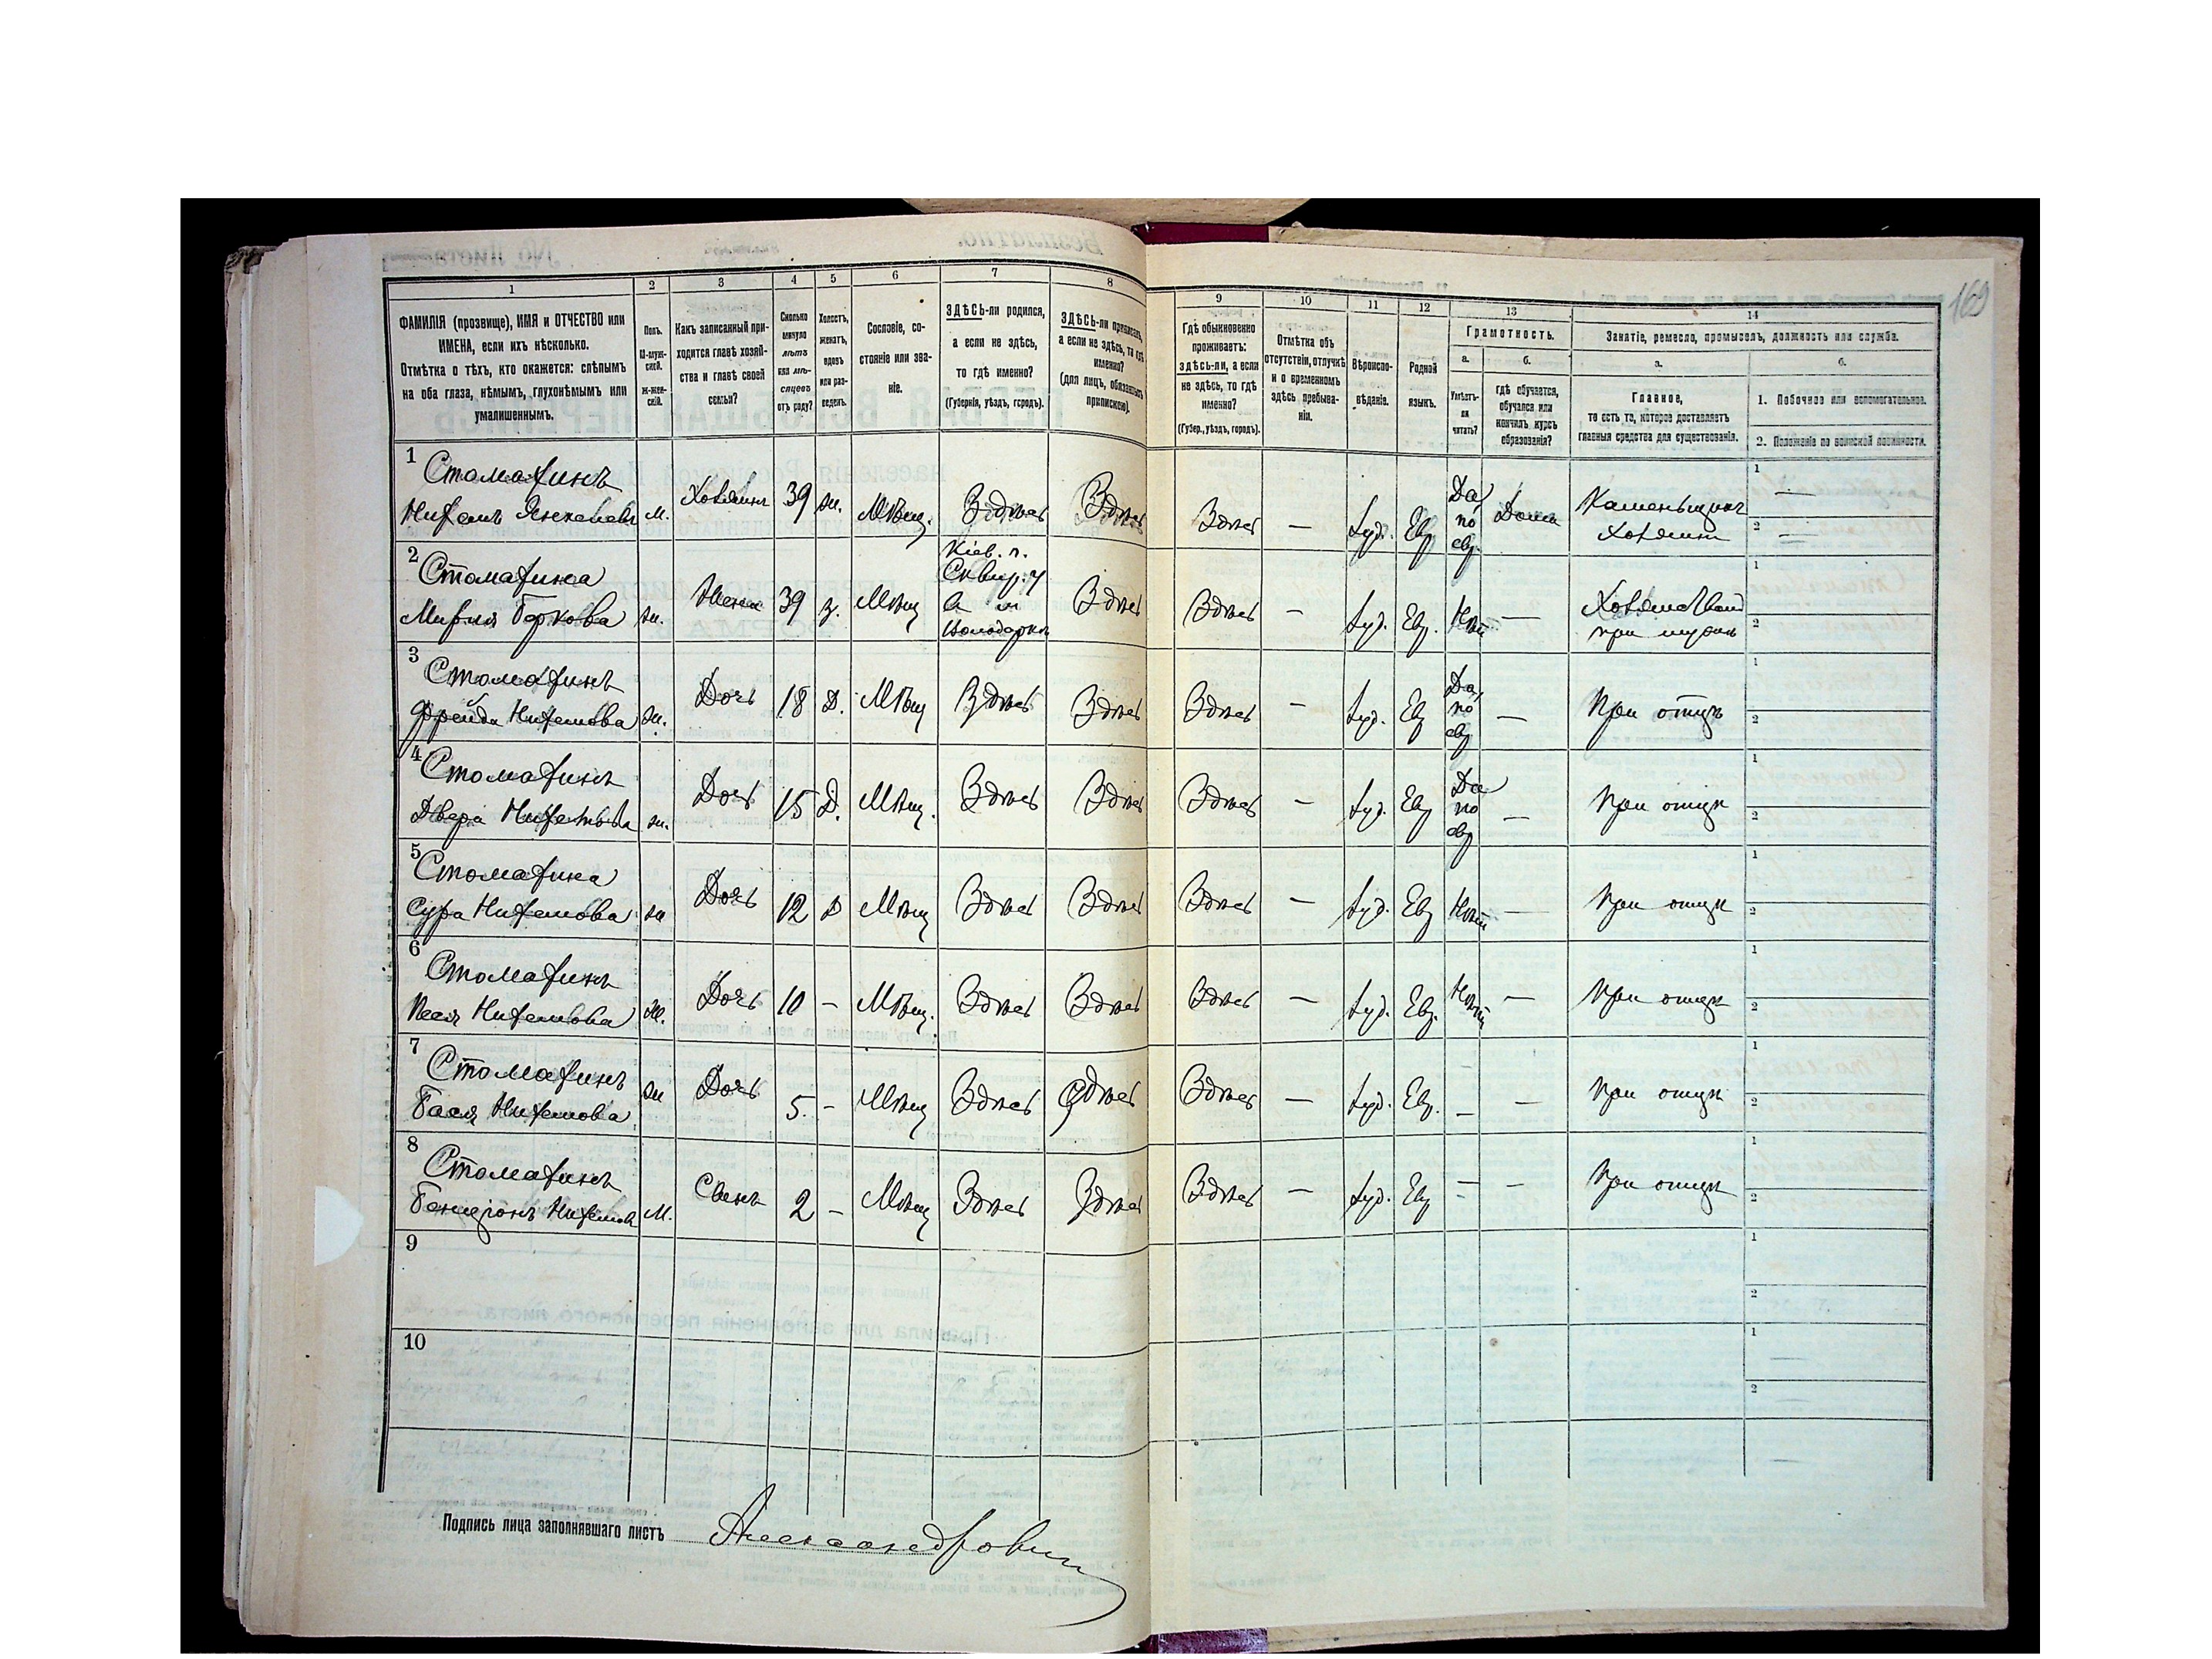 169
1
2
3
4
5
6
7
8
9
10
11
12
13
14
ФАМИЛІЯ (прозвище), ИМЯ и ОТЧЕСТВО или
ИМЕНА, если ихъ нѣсколько.
Отмѣтка о тѣхъ, кто окажется: слѣпымъ
на оба глаза, нѣмымъ, глухонѣмымъ или
умалишеннымъ.
Полъ.
М-муж-
ской.
Ж-жен-
скій.
Какъ записанный при-
ходится главѣ хозяй-
ства и главѣ своей
семьи?
Сколько
минуло
лѣтъ
или мѣ-
сяцевъ
отъ роду?
Холостъ,
женатъ,
вдовъ
или раз-
веденъ.
Сословіе, со-
стояніе или зва-
ніе.
ЗДѢСЬ-ли родился,
а если не здѣсь,
то гдѣ именно?
(Губернія, уѣздъ, городъ).
ЗДѢСЬ-ли приписанъ,
а если не здѣсь, то гдѣ
именно?
(для лицъ, обязанныхъ
припискою).
Гдѣ обыкновенно
проживаетъ:
здѣсь-ли, а если
не здѣсь, то гдѣ
именно?
(Губер., уѣздъ, городъ).
Отмѣтка объ
отсутствіи, отлучкѣ
и о временномъ
здѣсь пребыва-
ніи.
Вѣроиспо-
вѣданіе.
Родной
языкъ.
Грамотность.
а.
Умѣетъ-
ли
читать?
б.
гдѣ обучается,
обучался или
кончилъ курсъ
образованія?
Занятіе, ремесло, промыселъ, должность или служба.
а.
Главное,
то есть то, которое доставляетъ
главныя средства для существованія.
б.
1. Побочное или вспомогательное.
2. Положеніе по воинской повинности.
1
Стомахинъ
М.
Хозяинъ
39
ж.
Мѣщ.
Здѣсь
Здѣсь
Здѣсь
—
Іуд.
Евр
Да,
по
евр.
Дома
Каменьщикъ
Хозяинъ
1 —
2 —
2
Стомахина
Беркова
ж.
Жена
39
з.
Мѣщ
Кіев. г.
Сквир. у
в м
Володарка
Здѣсь
Здѣсь
—
Іуд.
Евр.
Нѣтъ
—
при мужѣ
1
2
3
Стомахинъ
Фрейда Нихемова
ж.
Дочь
18
Д.
Мѣщ
Здѣсь
Здѣсь
Здѣсь
—
Іуд.
Евр
Да,
по
евр
—
При отцѣ
1
2
4
Стомахинъ
Двера Нихемова
ж.
Дочь
15
Д.
Мѣщ.
Здѣсь
Здѣсь
Здѣсь
—
Іуд.
Евр
Да
по
евр
—
При отцѣ
1
2
5
Стомахина
Сура Нихемова
ж
Дочь
12
Д
Мѣщ
Здѣсь
Здѣсь
Здѣсь
—
Іуд.
Евр
Нѣтъ
—
При отцѣ
1
2
6
Стомахинъ
Песя Нихемова
ж.
Дочь
10
—
Мѣщ.
Здѣсь
Здѣсь
Здѣсь
—
Іуд.
Евр.
Нѣтъ
—
При отцѣ
1
2
7
Стомахинъ
Бася Нихемова
ж
Дочь
5.
—
Мѣщ
Здѣсь
Здѣсь
Здѣсь
—
Іуд.
Евр.
—
—
При отцѣ
1
2
8
Стомахинъ
Бенціонъ Нихемов
М.
Сынъ
2
—
Мѣщ
Здѣсь
Здѣсь
Здѣсь
—
Іуд.
Евр
—
—
При отцѣ
1
2
9
1
2
10
1
2
Подпись лица заполнявшаго листъ